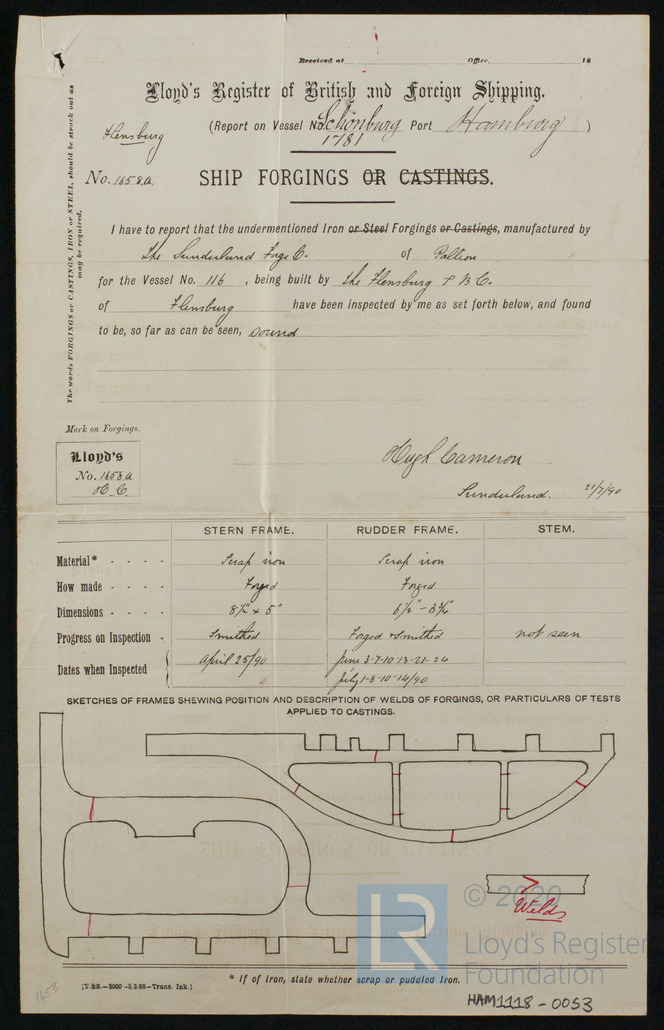 Received at Office, 18
Lloyd's Register of British and Foreign Shipping.
Flensburg
(Report on Vessel No. Schönburg Port Hamburg )
1781
No. 1658a SHIP FORGINGS OR CASTINGS.
The words FORGINGS or CASTINGS, IRON or STEEL, should be struck out as
may be required.
I have to report that the undermentioned Iron or Steel Forgings or Castings, manufactured by
The Sunderland Forge C. of Pallion
for the Vessel No. 116 , being built by the Flensburg S B C.
of Flensburg have been inspected by me as set forth below, and found
to be, so far as can be seen, sound
Mark on Forgings.
Lloyd's
No. 1658a
H. C.
Hugh Cameron
Sunderland. 21/7/90
STERN FRAME. RUDDER FRAME. STEM.
Material* - - - - Scrap iron Scrap iron
How made - - - - Forged Forged
Dimensions - - - - 8½" x 5"
Progress on Inspection - Smithed Forged & Smithed not seen
Dates when Inspected April 25/90 June 3-7-10-13-21-24
July 1-8-10-14/90
SKETCHES OF FRAMES SHEWING POSITION AND DESCRIPTION OF WELDS OF FORGINGS, OR PARTICULARS OF TESTS
APPLIED TO CASTINGS.
Welds
© 2020
LR
Lloyd's Register
Foundation
* If of Iron, state whether scrap or puddled Iron.
[T.&S.—2000 —5,3,88—Trans. Ink.]
1658
HAM1118-0053